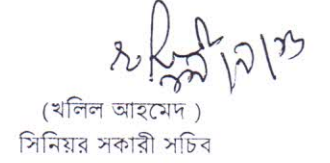 (খলিল আহমেদ )
সিনিয়র সকারী সচিব